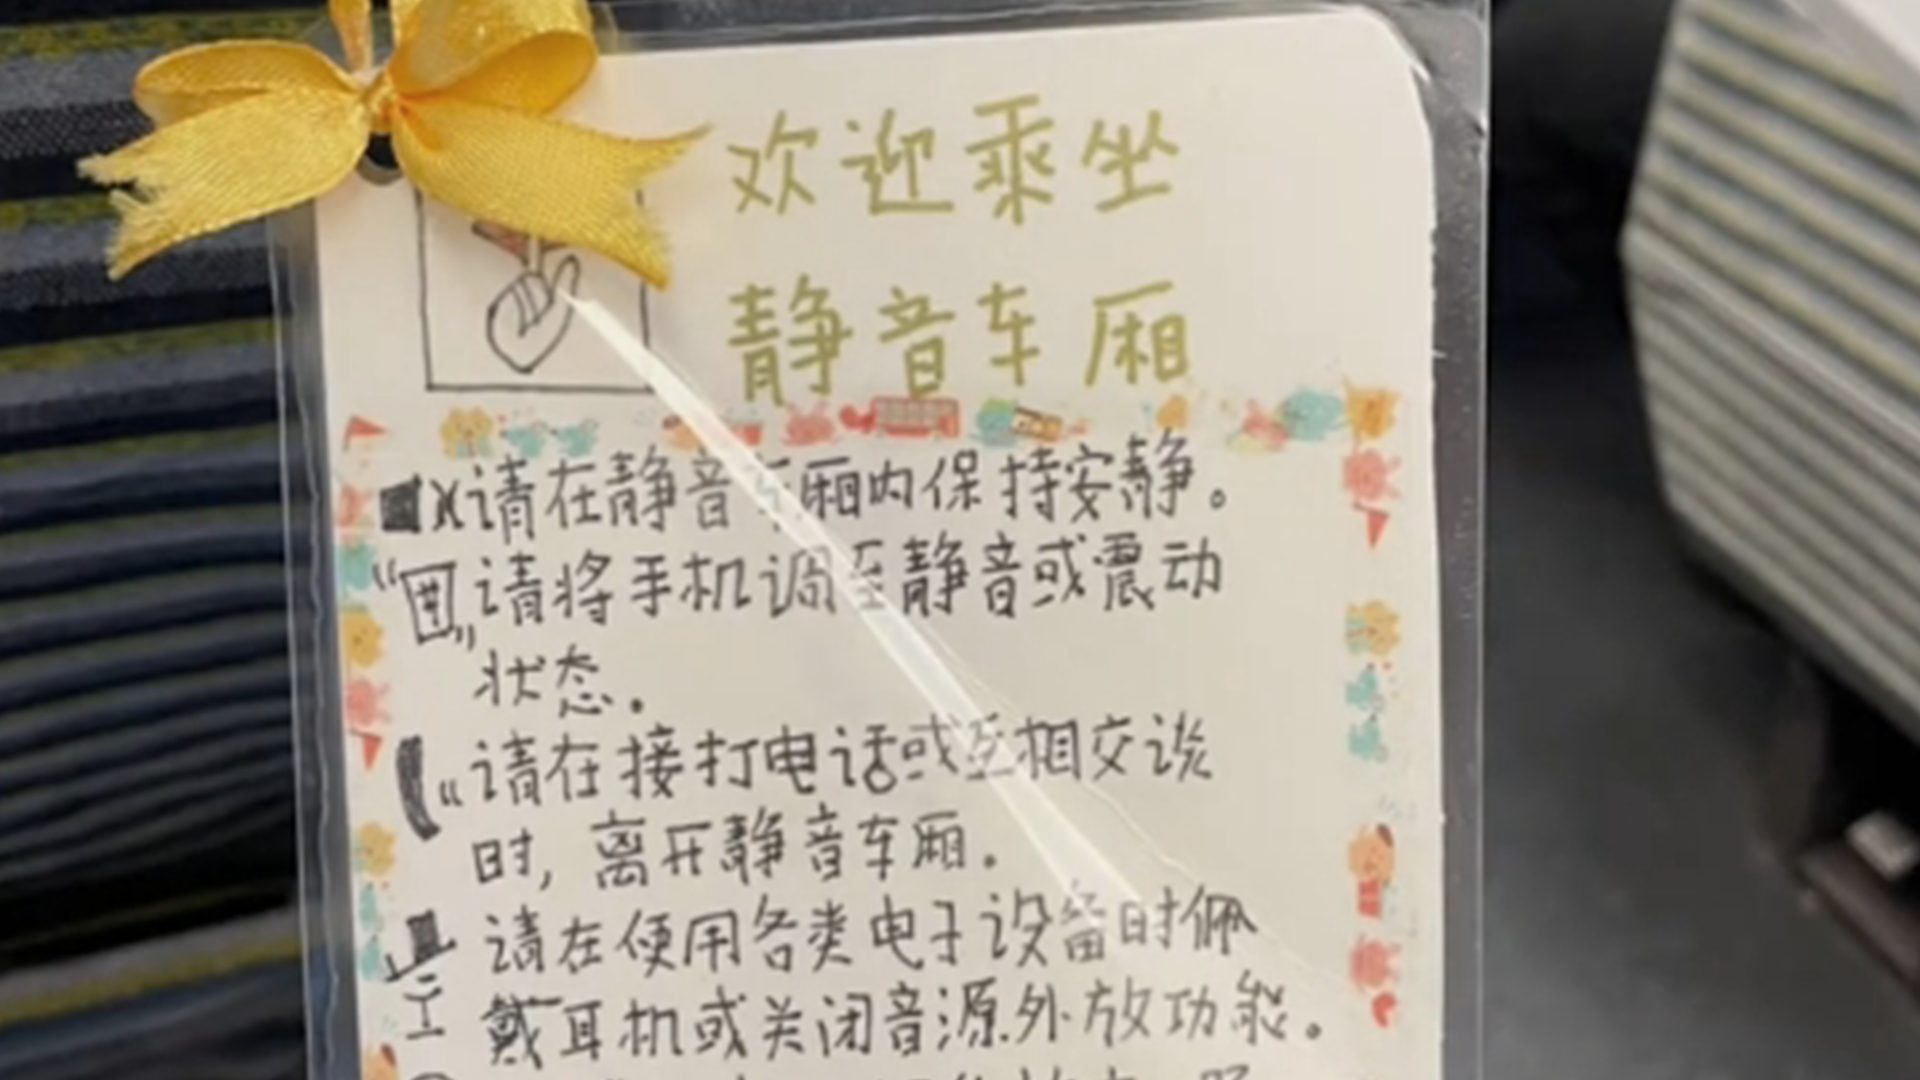 欢迎乘坐
静音车厢
请在静音车厢内保持安静。
请将手机调至静音或震动
状态.
请在接打电话或互相交谈
时,离开静音车厢.
请在使用各类电子设备时佩
戴耳机或关闭音源外放功能。